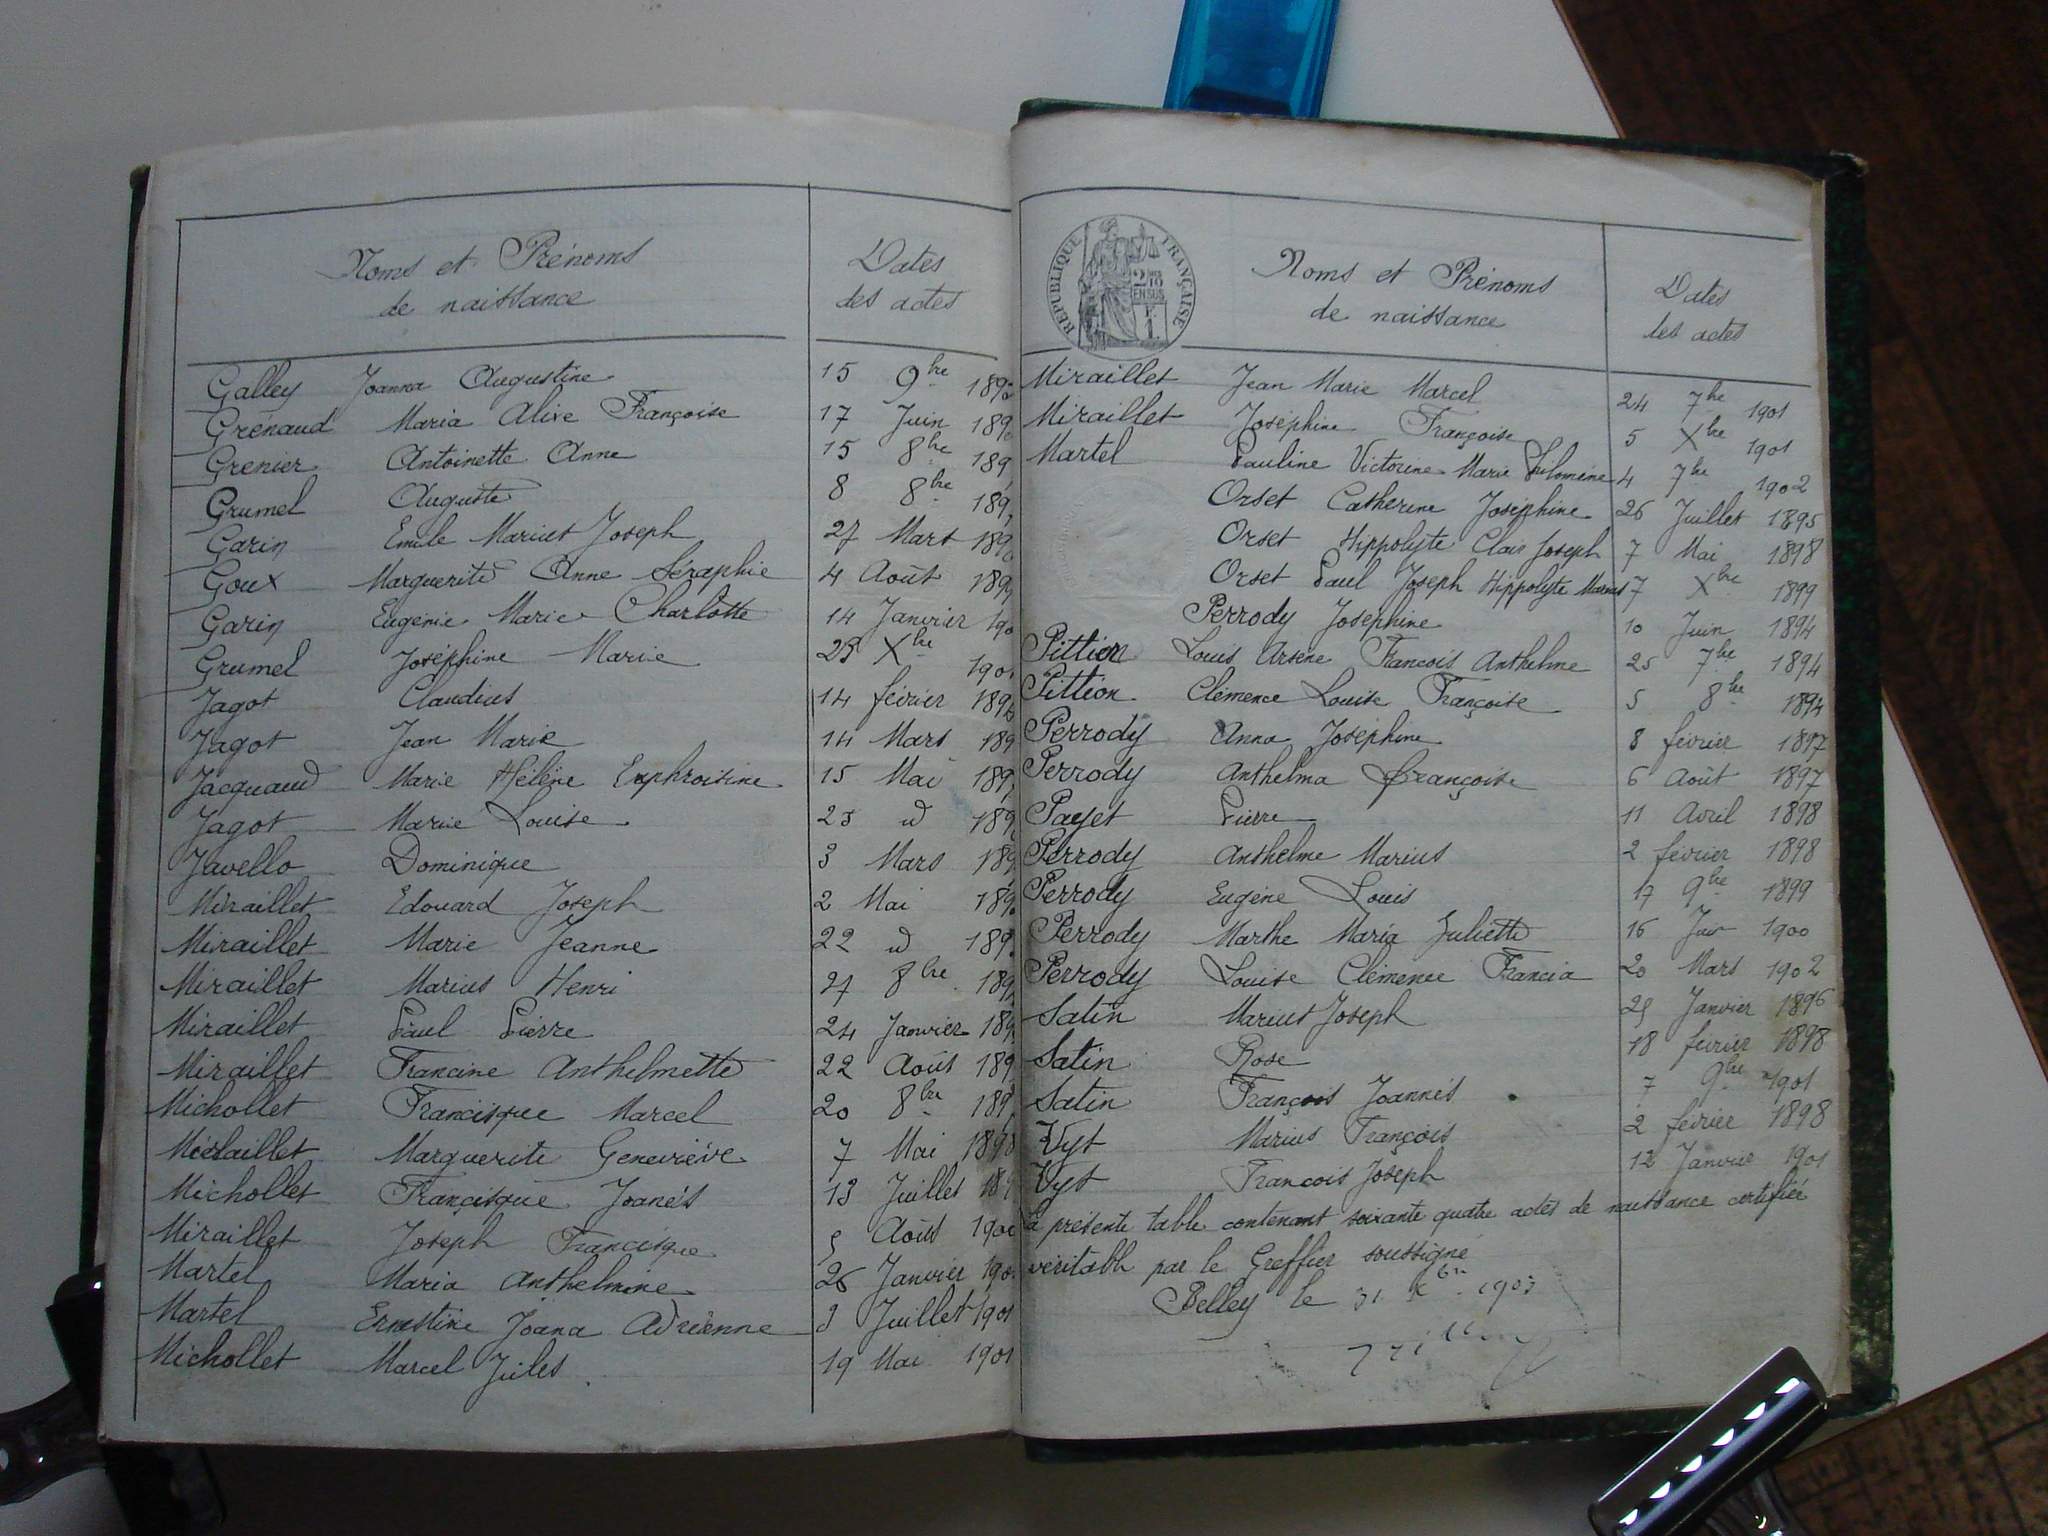 Noms et Prénoms
de naissance
Dates
des actes
Galley Joanna Augustine 15 9bre 189
Grénaud Maria Alixe Françoise 17 Juin 189
Grenier Antoinette Anne 15 8bre 189
Grumel Auguste 8 8bre 189
Garin Emile Marius Joseph 27 Mars 189
Goux Marguerite Anne Séraphie 4 Août 189
Garin Eugénie Marie Charlotte 14 Janvier 190
Grumel Joséphine Marie Xbre 190
Jagot Claudius 14 février 189
Jagot Jean Marie 14 Mars 189
Jacquand Marie Hélène Euphroisine 15 Mai 189
Jagot Marie Louise 23 id 189
Javello Dominique 3 Mars 189
Miraillet Edouard Joseph 2 Mai 189
Miraillet Marie Jeanne 22 id 189
Miraillet Marius Henri 27 8bre 189
Miraillet Paul Pierre 24 Janvier 189
Miraillet Francine Anthelmette 22 Août 189
Michollet Francisque Marcel 20 8bre 189
Marguerite Geneviève 7 Mai 1898
Michollet Francisque Joanés 13 Juillet 189
Miraillet Joseph Francisque 5 Août 190
Martel Maria Anthelmine 26 Janvier 190
Martel Ernestine Joana Adrienne 3 Juillet 1901
Michollet Marcel Jules 19 Mai 1901
REPUBLIQUE FRANÇAISE
2/10
EN SUS
1
Noms et Prénoms
de naissance
Dates
des actes
Miraillet Jean Marie Marcel 24 7bre 1901
Miraillet Joséphine Françoise 5 Xbre 1901
Martel Pauline Victorine Marie Philomène 4 7bre 1902
Orset Catherine Joséphine 26 Juillet 1895
Orset Hippolyte Clair Joseph 7 Mai 1898
Orset Paul Joseph Hippolyte Marius 7 Xbre 1899
Perrody Josephine 10 Juin 1894
Pittion Louis Arsène François Anthelme 25 7bre 1894
Pittion Clémence Louise Françoise 5 8bre 1894
Perrody Anna Joséphine 8 février 1897
Perrody Anthelma Françoise 6 Août 1897
Payet Pierre 11 Avril 1898
Perrody Anthelme Marius 2 février 1898
Perrody Eugène Louis 17 9bre 1899
Perrody Marthe Maria Juliette 16 1900
Perrody Louise Clémence Francia 20 Mars 1902
Satin Marius Joseph 25 Janvier 1896
Satin Rose 18 février 1898
Satin François Joannès 7 9bre 1901
Vyt Marius François 2 février 1898
Vyt François Joseph 12 Janvier 1901
La présente table contenant soixante quatre actes de naissance certifiée
véritable par le Greffier soussigné
Belley le 31 Xbre 1903